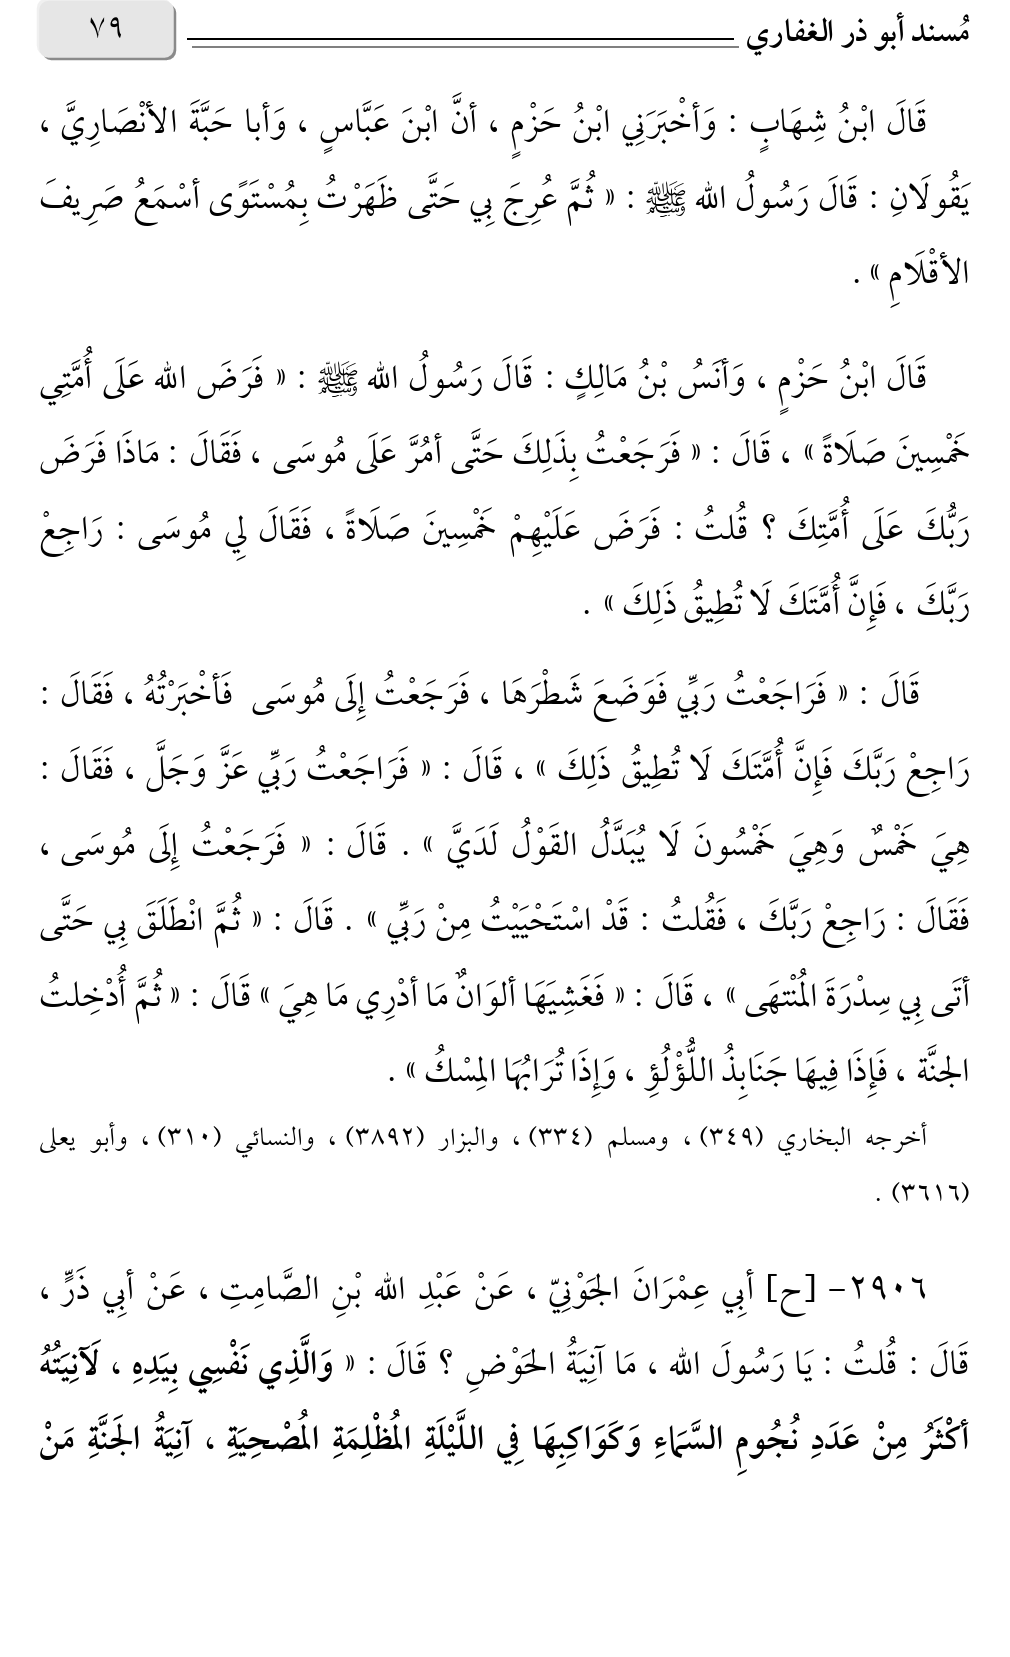 مُسند أبو ذر الغفاري ٧٩
قَالَ ابْنُ شِهَابٍ : وَأخْبَرَنِي ابْنُ حَزْمٍ ، أنَّ ابْنَ عَبَّاسٍ ، وَأبا حَبَّةَ الأنْصَارِيَّ ،
يَقُولَانِ : قَالَ رَسُولُ الله ﷺ : « ثُمَّ عُرِجَ بِي حَتَّى ظَهَرْتُ بِمُسْتَوًى أسْمَعُ صَرِيفَ
الأقْلَامِ » .
قَالَ ابْنُ حَزْمٍ ، وَأنَسُ بْنُ مَالِكٍ : قَالَ رَسُولُ الله ﷺ : « فَرَضَ الله عَلَى أُمَّتِي
خَمْسِينَ صَلَاةً » ، قَالَ : « فَرَجَعْتُ بِذَلِكَ حَتَّى أمُرَّ عَلَى مُوسَى ، فَقَالَ : مَاذَا فَرَضَ
رَبُّكَ عَلَى أُمَّتِكَ ؟ قُلتُ : فَرَضَ عَلَيْهِمْ خَمْسِينَ صَلَاةً ، فَقَالَ لِي مُوسَى : رَاجِعْ
رَبَّكَ ، فَإِنَّ أُمَّتَكَ لَا تُطِيقُ ذَلِكَ » .
قَالَ : « فَرَاجَعْتُ رَبِّي فَوَضَعَ شَطْرَهَا ، فَرَجَعْتُ إِلَى مُوسَى فَأخْبَرْتُهُ ، فَقَالَ :
رَاجِعْ رَبَّكَ فَإِنَّ أُمَّتَكَ لَا تُطِيقُ ذَلِكَ » ، قَالَ : « فَرَاجَعْتُ رَبِّي عَزَّ وَجَلَّ ، فَقَالَ :
هِيَ خَمْسٌ وَهِيَ خَمْسُونَ لَا يُبَدَّلُ القَوْلُ لَدَيَّ » . قَالَ : « فَرَجَعْتُ إِلَى مُوسَى ،
فَقَالَ : رَاجِعْ رَبَّكَ ، فَقُلتُ : قَدْ اسْتَحْيَيْتُ مِنْ رَبِّي » . قَالَ : « ثُمَّ انْطَلَقَ بِي حَتَّى
أتَى بِي سِدْرَةَ المُنْتهَى » ، قَالَ : « فَغَشِيَهَا ألوَانٌ مَا أدْرِي مَا هِيَ » قَالَ : « ثُمَّ أُدْخِلتُ
الجنَّة ، فَإِذَا فِيهَا جَنَابِذُ اللُّؤْلُؤِ ، وَإِذَا تُرَابُهَا المِسْكُ » .
أخرجه البخاري (٣٤٩) ، ومسلم (٣٣٤) ، والبزار (٣٨٩٢) ، والنسائي (٣١٠) ، وأبو يعلى
(٣٦١٦) .
٢٩٠٦- [ح] أبِي عِمْرَانَ الجَوْنِيّ ، عَنْ عَبْدِ الله بْنِ الصَّامِتِ ، عَنْ أبِي ذَرٍّ ،
قَالَ : قُلتُ : يَا رَسُولَ الله ، مَا آنِيَةُ الحَوْضِ ؟ قَالَ : « وَالَّذِي نَفْسِي بِيَدِهِ ، لَآنِيَتُهُ
أكْثَرُ مِنْ عَدَدِ نُجُومِ السَّمَاءِ وَكَوَاكِبِهَا فِي اللَّيْلَةِ المُظْلِمَةِ المُصْحِيَةِ ، آنِيَةُ الجَنَّةِ مَنْ